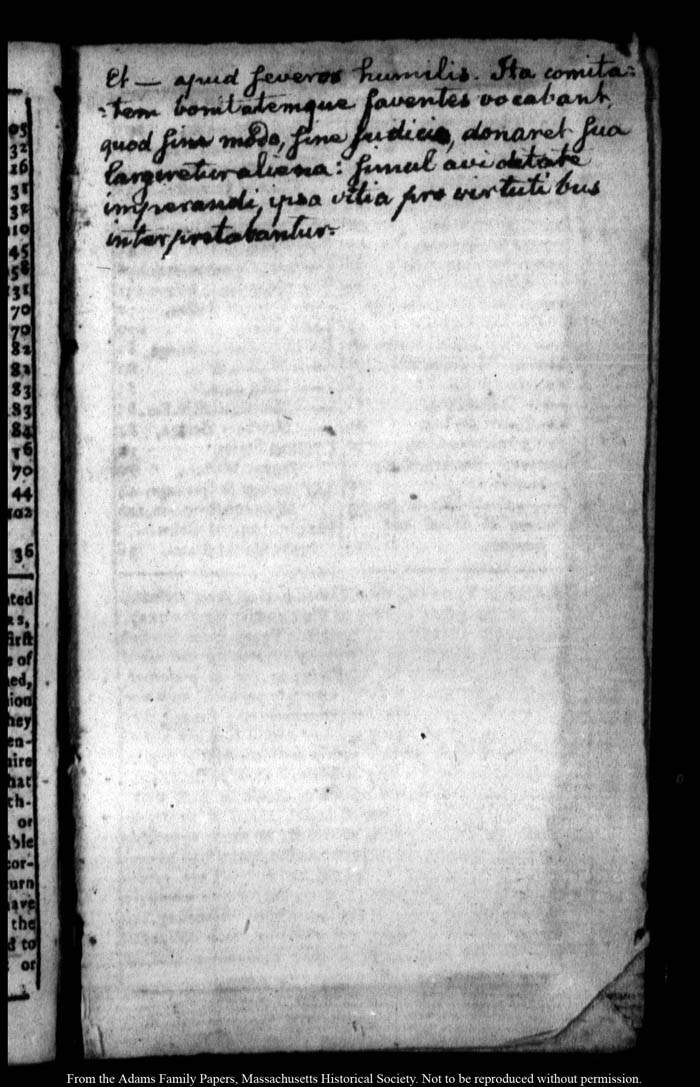 03
32
16
31
32
110
45
58
31
70
70
82
82
83
83
84
56
70
44
102
36
ted
rs,
first
e of
ed,
ion
hey
en-
uire
hat
ch-
or
ible
cor-
urn
ave
the
d to
or
Et — apud severos humilis. Ita comita:
:tem bonitatemque faventes vocabant,
quod sine modo, sine judicio, donaret sua
largireturaliena: simul aviditate
imperandi, ipsa vitia pro virtutibus
interpretabantur.
From the Adams Family Papers, Massachusetts Historical Society. Not to be reproduced without permission.